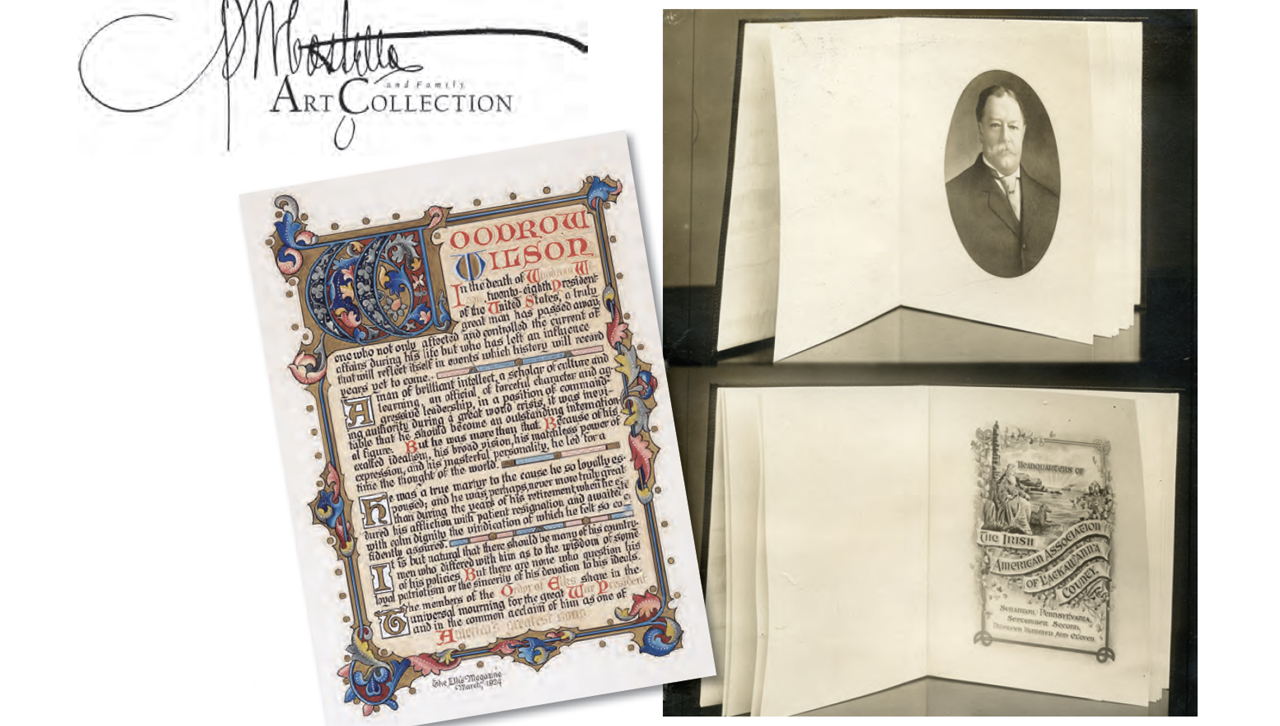 and Family
ART COLLECTION
WOODROW
WILSON
In the death of Woodrow Wilson
twenty-eighth President
of the United States, a truly
great man has passed away,
one who not only affected and controlled the current of
affairs during his life but who has left an influence
that will reflect itself in events which history will record
years yet to come.
A man of brilliant intellect, a scholar of culture and
learning, an official of forceful character and ag
gressive leadership, in a position of command
ing authority during a great world crisis, it was inevi
table that he should become an outstanding internation
al figure. But he was more than that. Because of his
exalted idealism, his broad vision, his matchless power of
expression, and his masterful personality, he led for a
time the thought of the world.
He was a true martyr to the cause he so loyally es-
poused; and he was, perhaps, never more truly great
than during the years of his retirement when he
dured his affliction with patient resignation and
with calm dignity the vindication of which he felt so
fidently assured.
It is but natural that there should be many of his country-
men who differed with him as to the wisdom of some
of his policies. But there are none who question his
loyal patriotism or the sincerity of his devotion to his ideals.
The members of the Order of Elks share in the
universal mourning for the great War President
and in the common acclaim of him as one of
America's greatest sons.
The Elks Magazine
March, 1924
HEADQUARTERS OF
THE IRISH
AMERICAN ASSOCIATION
OF LACKAWANNA
COUNTY
SCRANTON, PENNSYLVANIA,
SEPTEMBER SECOND,
NINETEEN HUNDRED AND ELEVEN